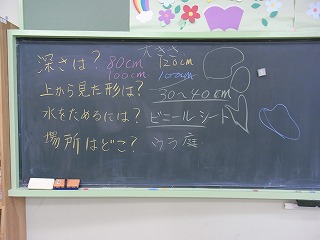 大きさ
深さは? 80cm 120cm
100cm 100cm
上から見た形は?
30〜40cm
水をためるには? ビニールシート
場所はどこ? ウラ庭